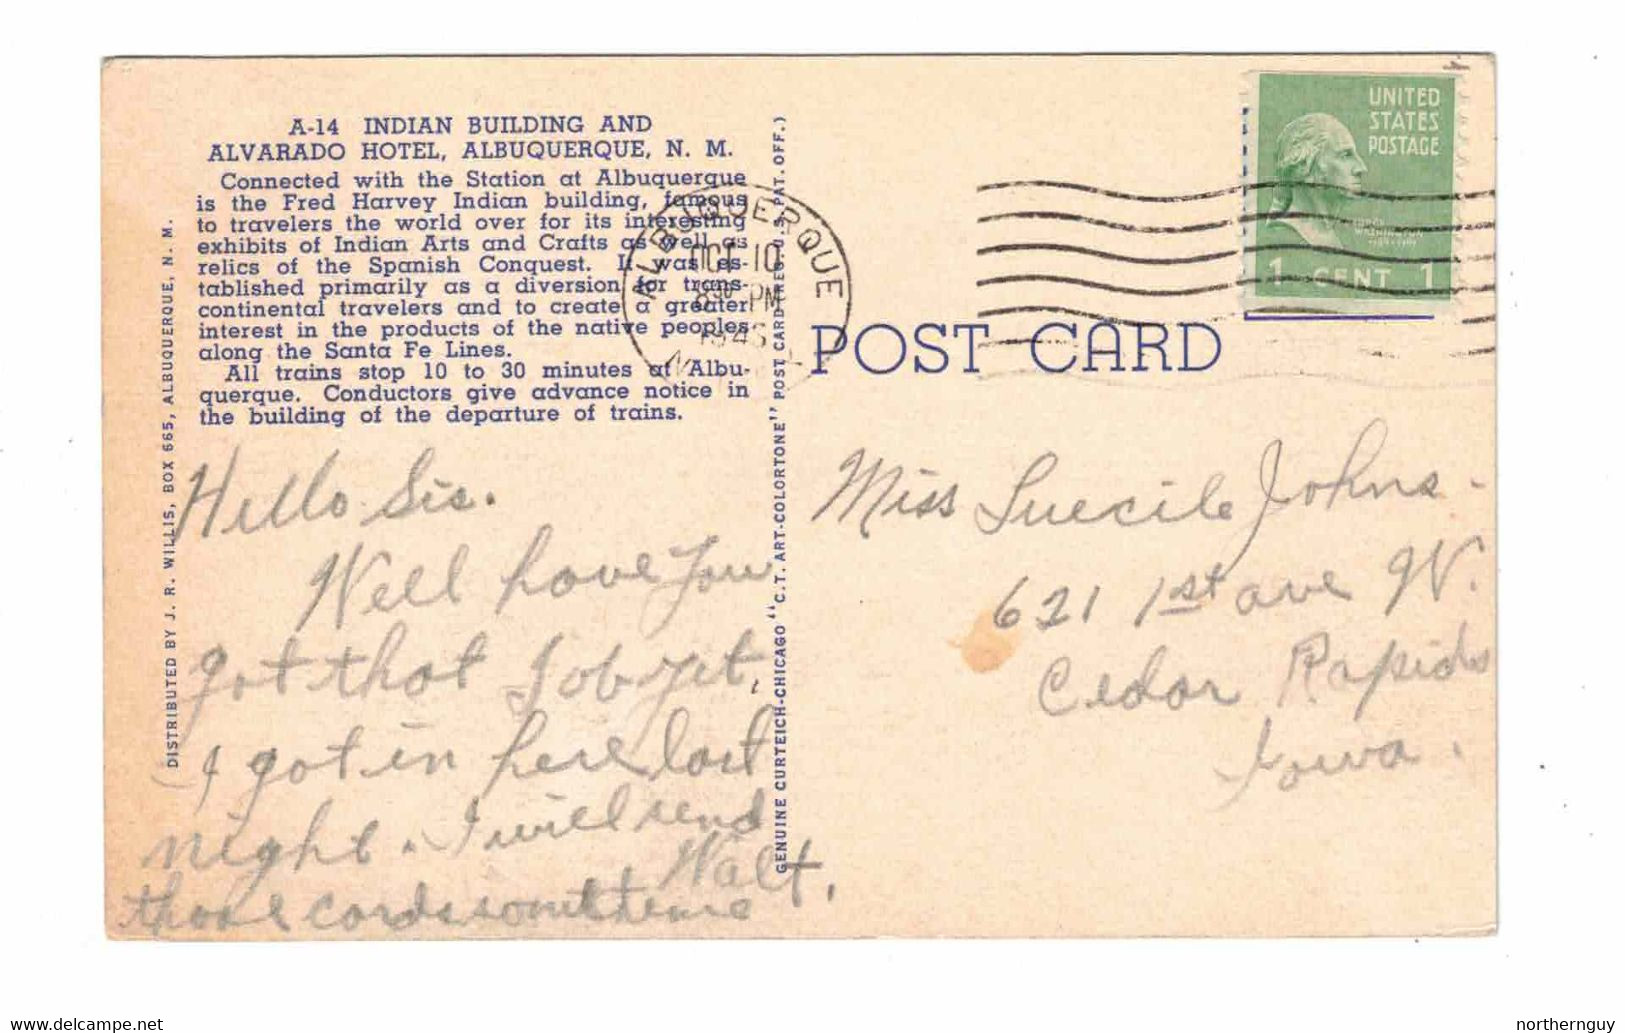 A-14 INDIAN BUILDING AND
ALVARADO HOTEL, ALBUQUERQUE, N. M.
Connected with the Station at Albuquerque
is the Fred Harvey Indian building, famous
to travelers the world over for its interesting
exhibits of Indian Arts and Crafts as well as
relics of the Spanish Conquest. It was es-
tablished primarily as a diversion for trans-
continental travelers and to create a greater
interest in the products of the native peoples
along the Santa Fe Lines.
All trains stop 10 to 30 minutes at Albu-
querque. Conductors give advance notice in
the building of the departure of trains.
Hello Sis.
Well have you
got that Job yet,
I got in here last
night. I will send
those cards sometime
Walt.
DISTRIBUTED BY J. R. WILLIS, BOX 665, ALBUQUERQUE, N. M.
GENUINE CURTEICH-CHICAGO "C.T. ART-COLORTONE" POST CARD (REG. U.S. PAT. OFF.)
ALBUQUERQUE
OCT 10
8 30 PM
POST CARD
UNITED
STATES
POSTAGE
WASHINGTON
1 CENT 1
Miss Luecile Johns.
621 1st ave W.
Cedar Rapids
Iowa.
northernguy